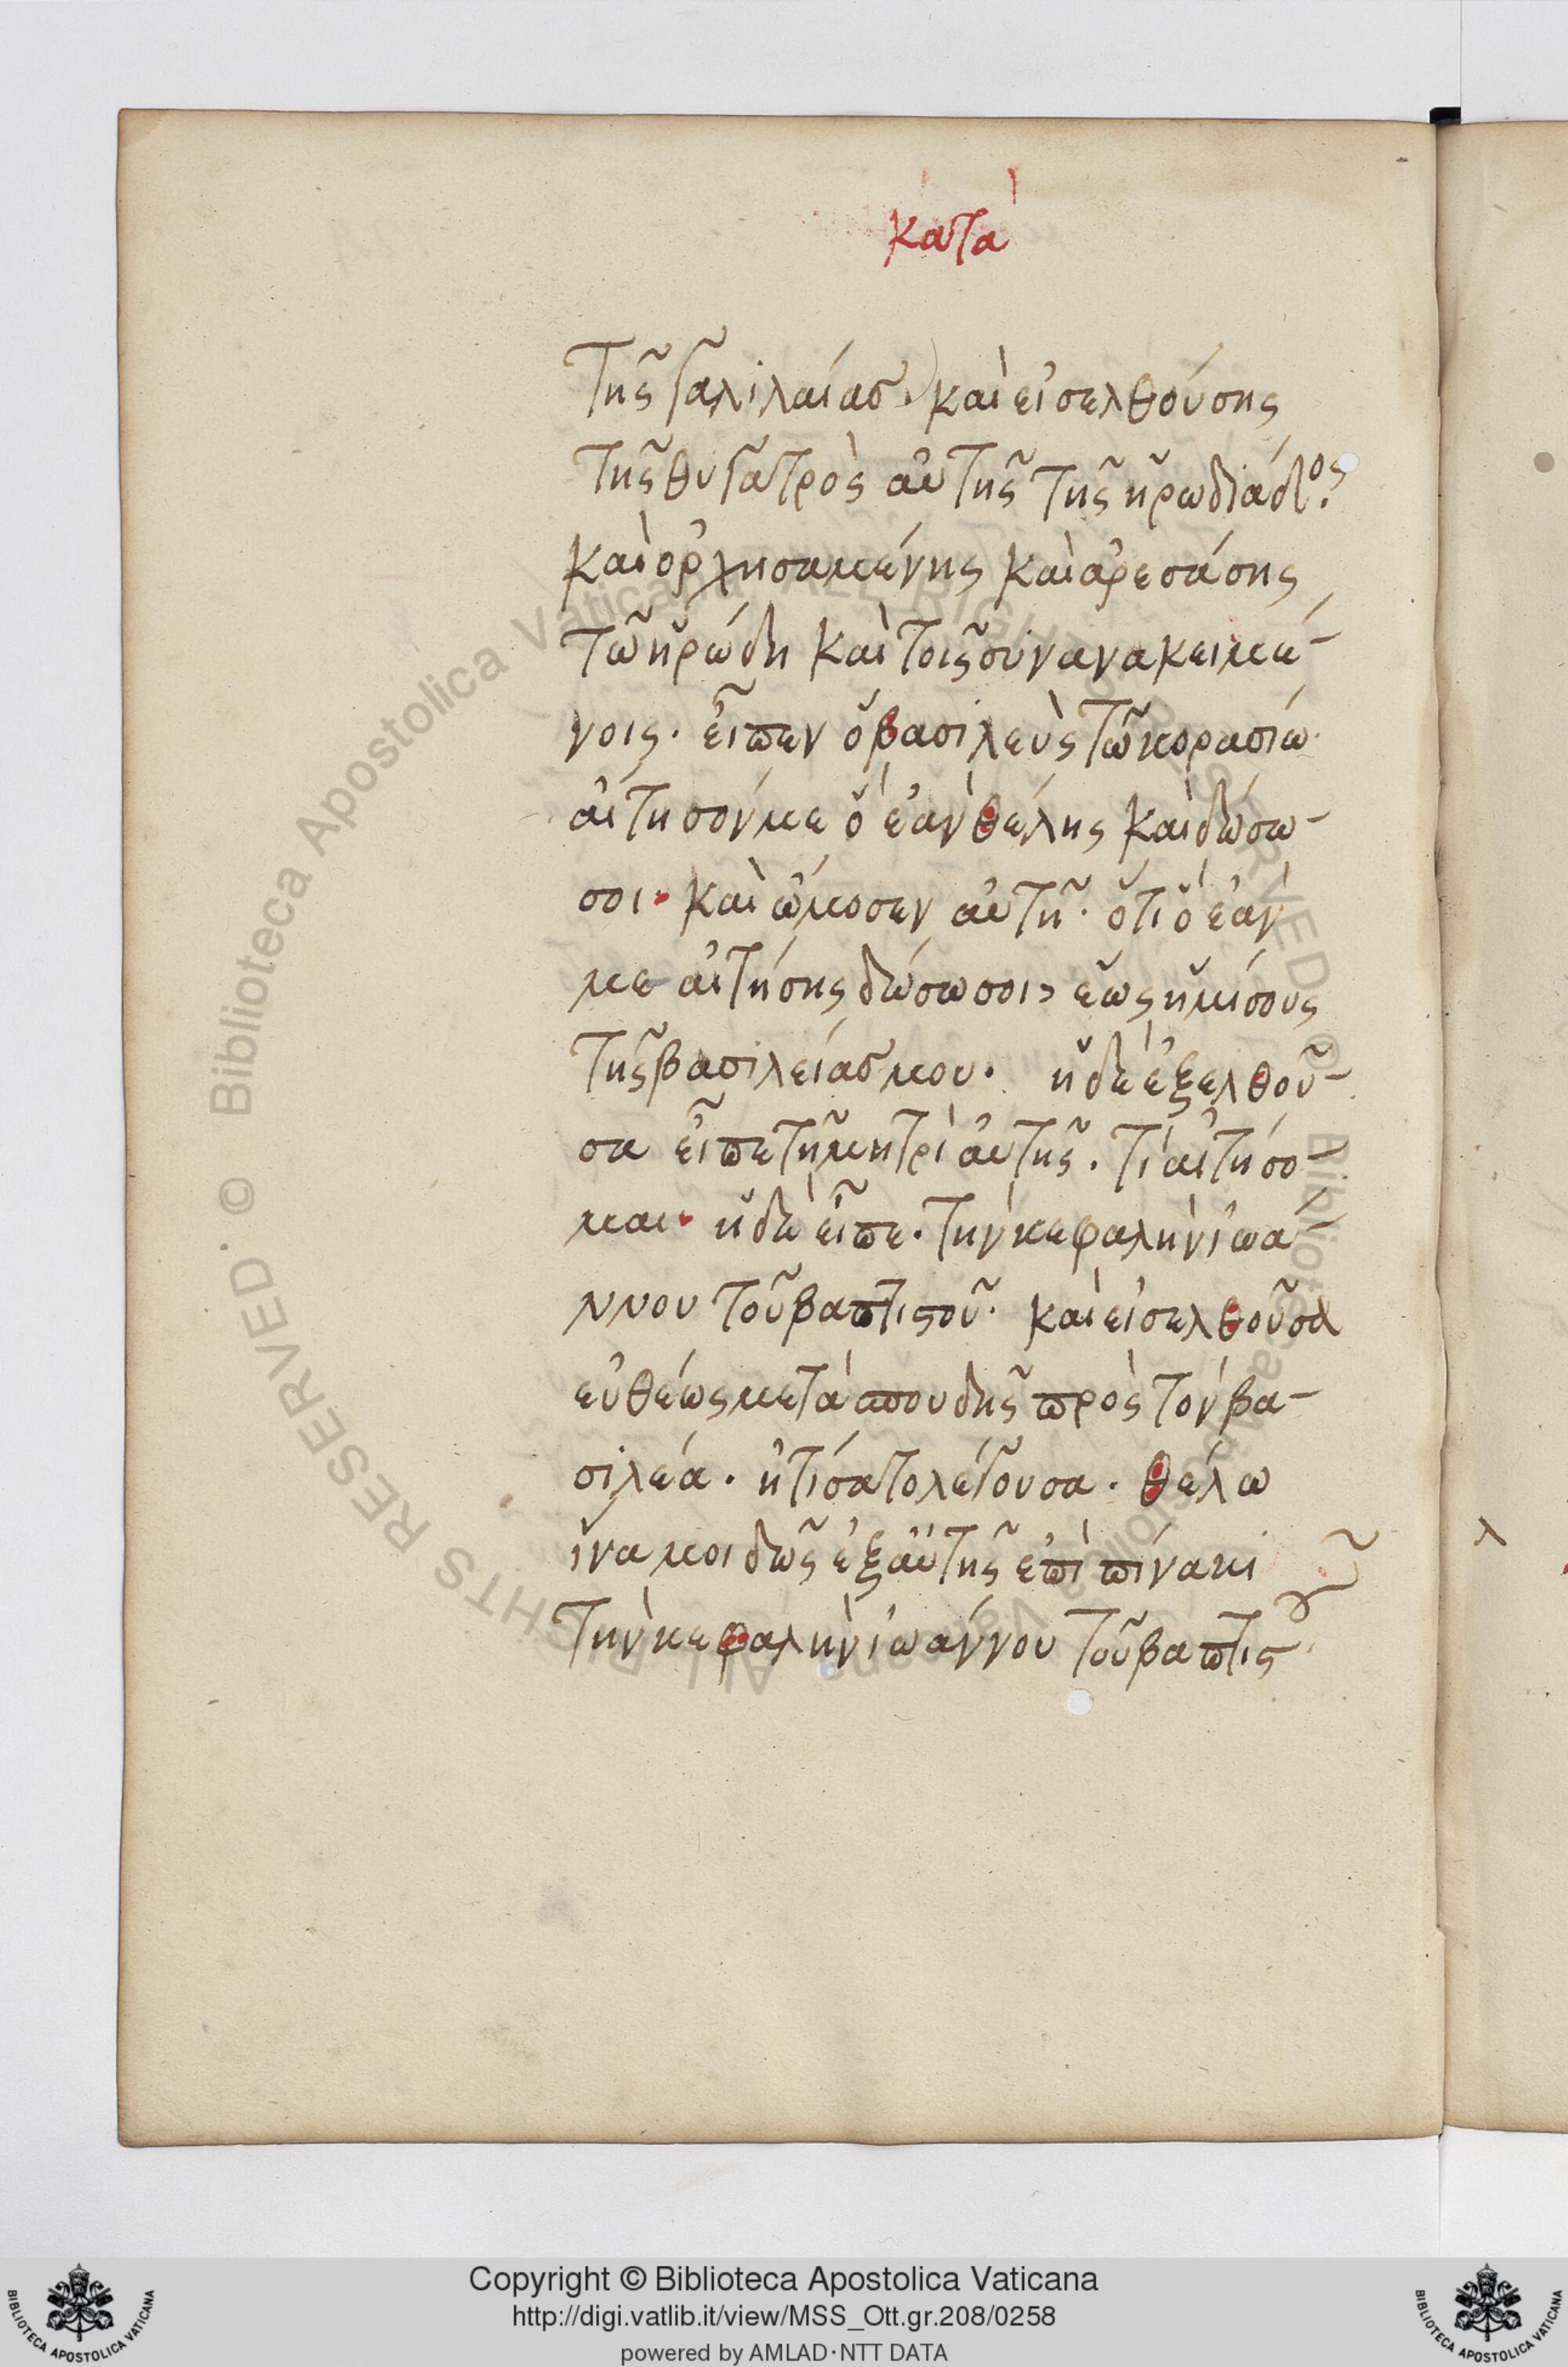 κατὰ
τῆς γαλιλαίας. καὶ εἰσελθούσης
τῆς θυγατρὸς αὐτῆς τῆς ἡρωδιάδος.
καὶ ὀρχησαμένης καὶ ἀρεσάσης
τῶ ἡρώδη καὶ τοῖς συνανακειμέ-
νοις. εἶπεν ὁ βασιλεὺς τῶ κορασίω.
αἴτησόν με ὃ ἐὰν θέλης καὶ δώσω-
σοι. καὶ ὤμοσεν αὐτῆ. ὅτι ὃ ἐάν
με αἰτήσης δώσω σοι, ἕως ἡμίσους
τῆς βασιλείας μου. ἡ δὲ ἐξελθοῦ-
σα εἶπε τῆ μητρὶ αὐτῆς. τί αἰτήσο-
μαι. ἡ δὲ εἶπε. τὴν κεφαλὴν ἰωά-
ννου τοῦ βαπτιστοῦ. καὶ εἰσελθοῦσα
εὐθέως μετὰ σπουδῆς πρὸς τὸν βα-
σιλέα. ἠτίσατο λέγουσα. θέλω
ἵνα μοι δῶς ἐξαὐτῆς ἐπὶ πίνακι
τὴν κεφαλὴν ἰωάννου τοῦ βαπτιστοῦ.
Copyright © Biblioteca Apostolica Vaticana
http://digi.vatlib.it/view/MSS_Ott.gr.208/0258
powered by AMLAD·NTT DATA